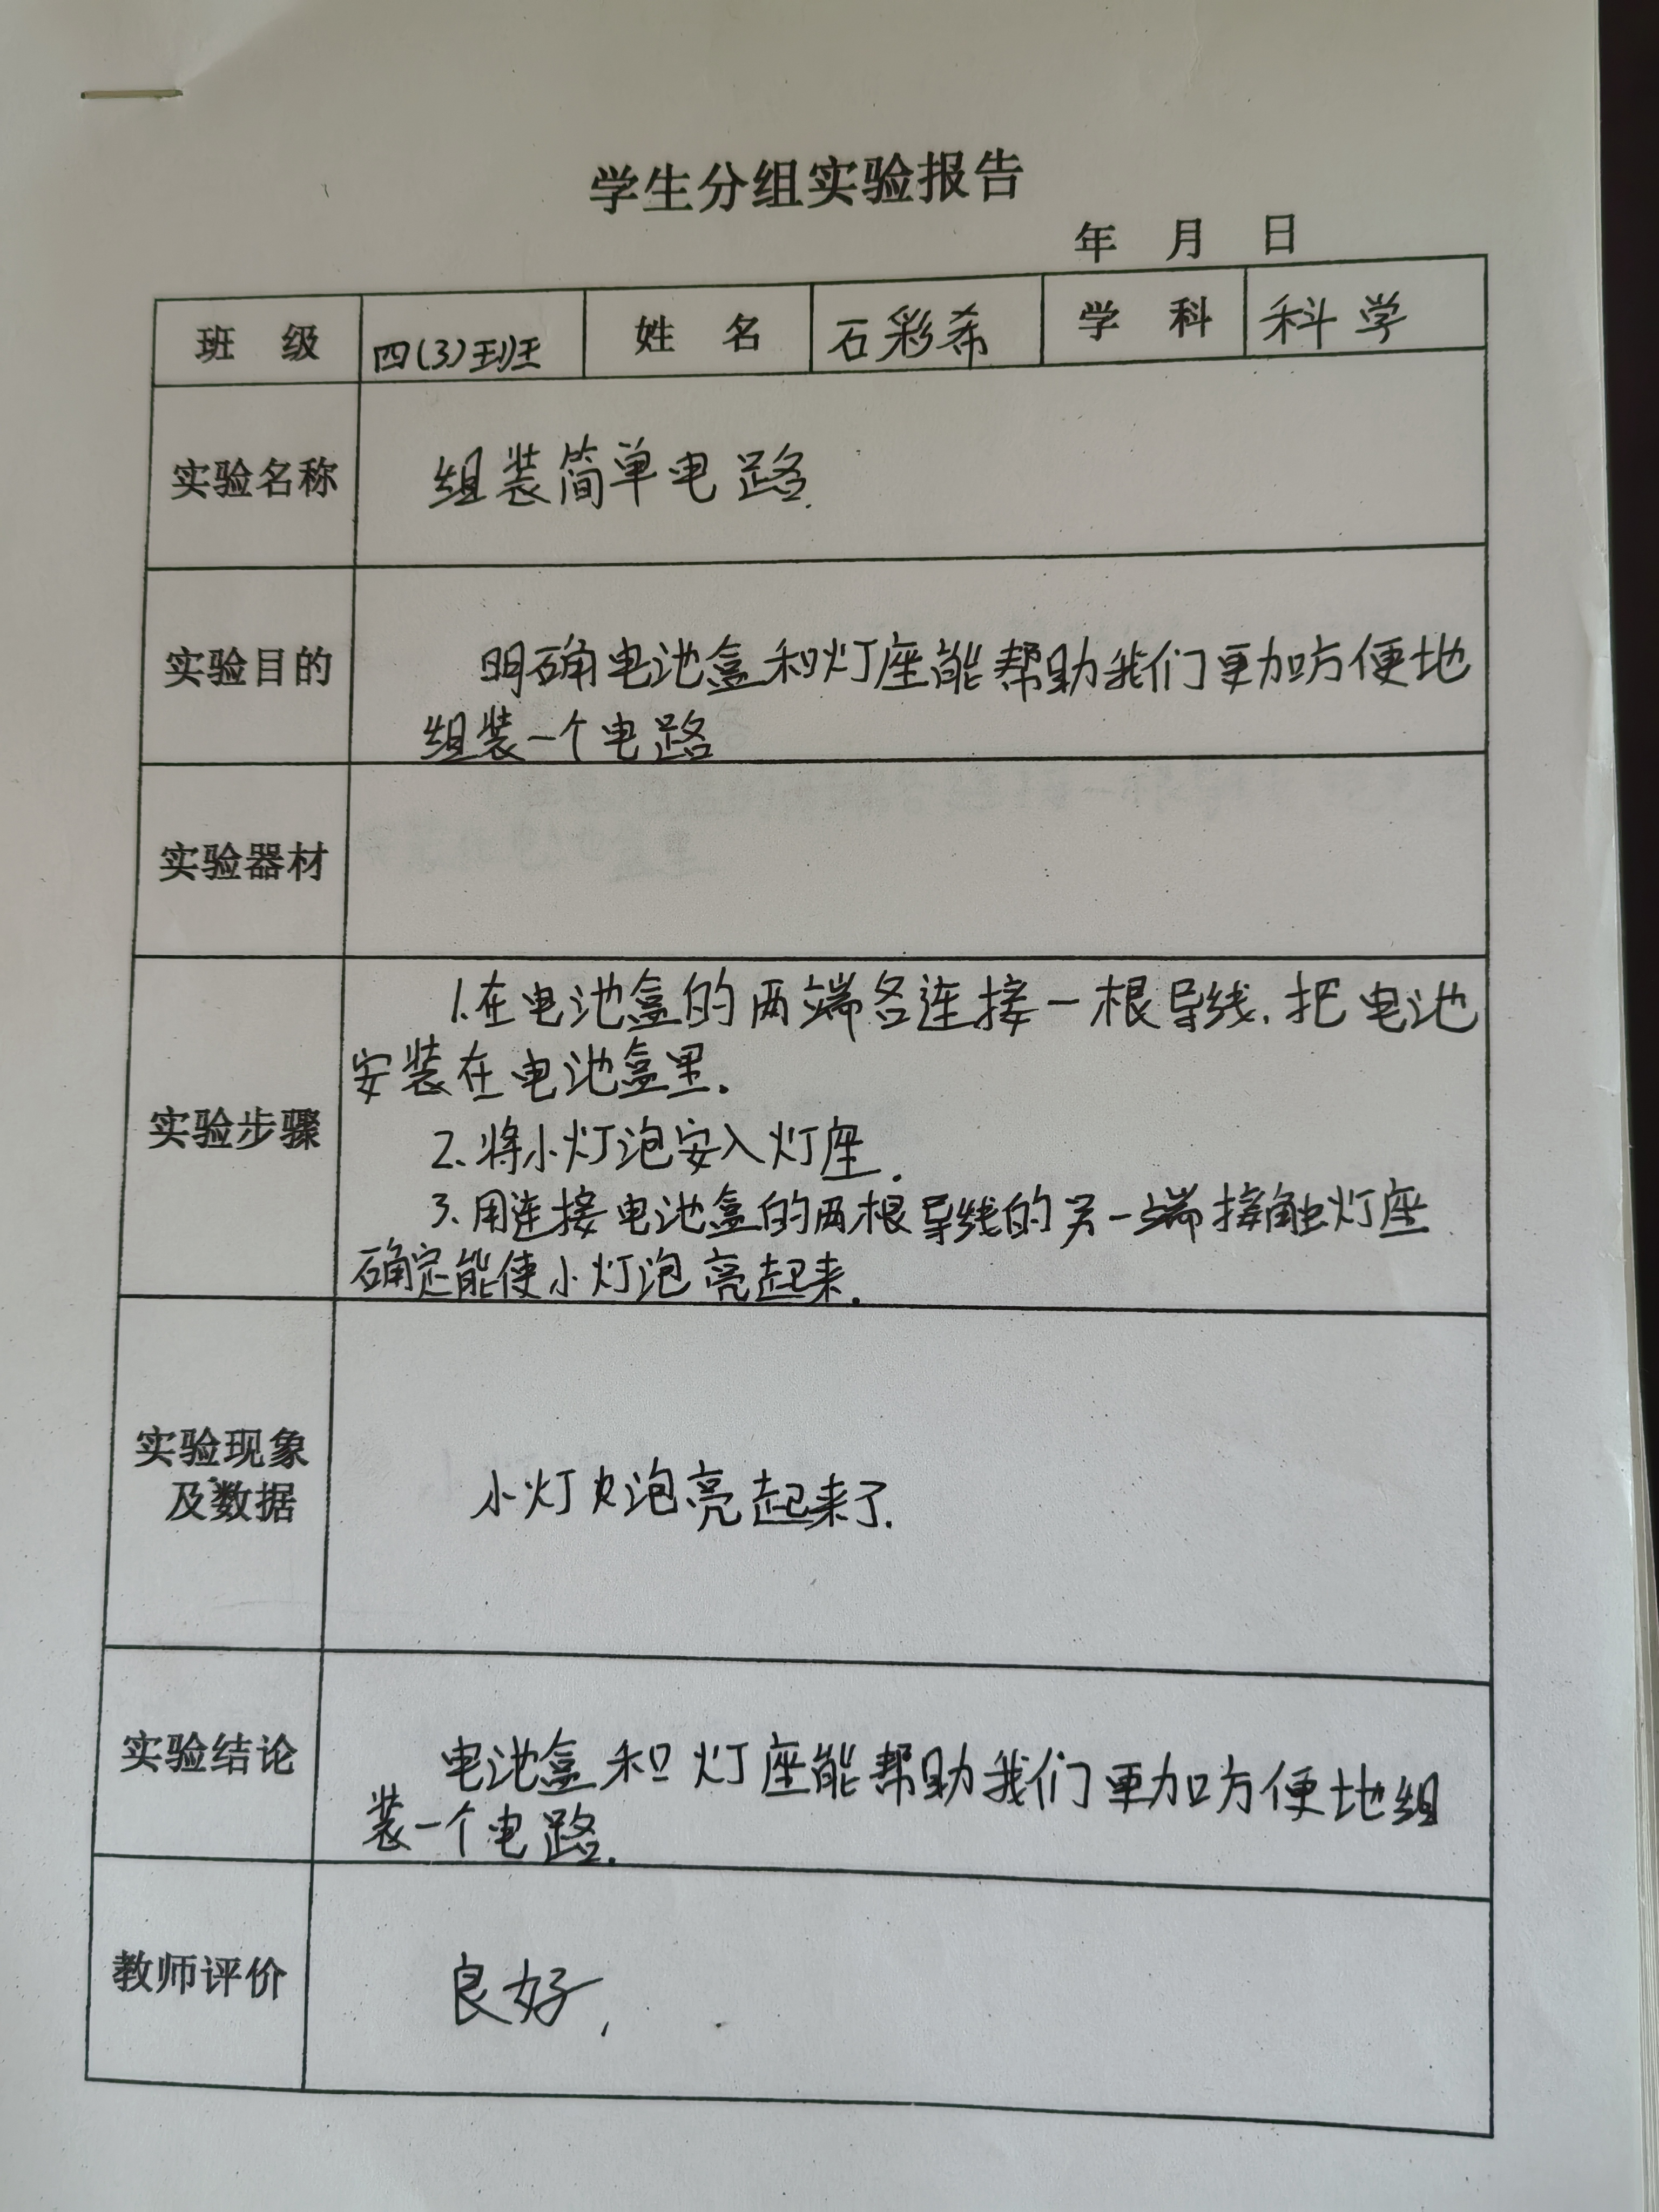 学生分组实验报告
年 月 日
班 级 四(3)班 姓 名 石彩希 学 科 科学
实验名称 组装简单电路.
实验目的 明确电池盒和灯座能帮助我们更加方便地
组装一个电路
实验器材
1.在电池盒的两端各连接一根导线.把电池
安装在电池盒里.
实验步骤
2.将小灯泡安入灯座.
3.用连接电池盒的两根导线的另一端接触灯座
确定能使小灯泡亮起来.
实验现象
及数据
小灯泡亮起来了.
实验结论 电池盒和灯座能帮助我们更加方便地组
装一个电路.
教师评价 良好,